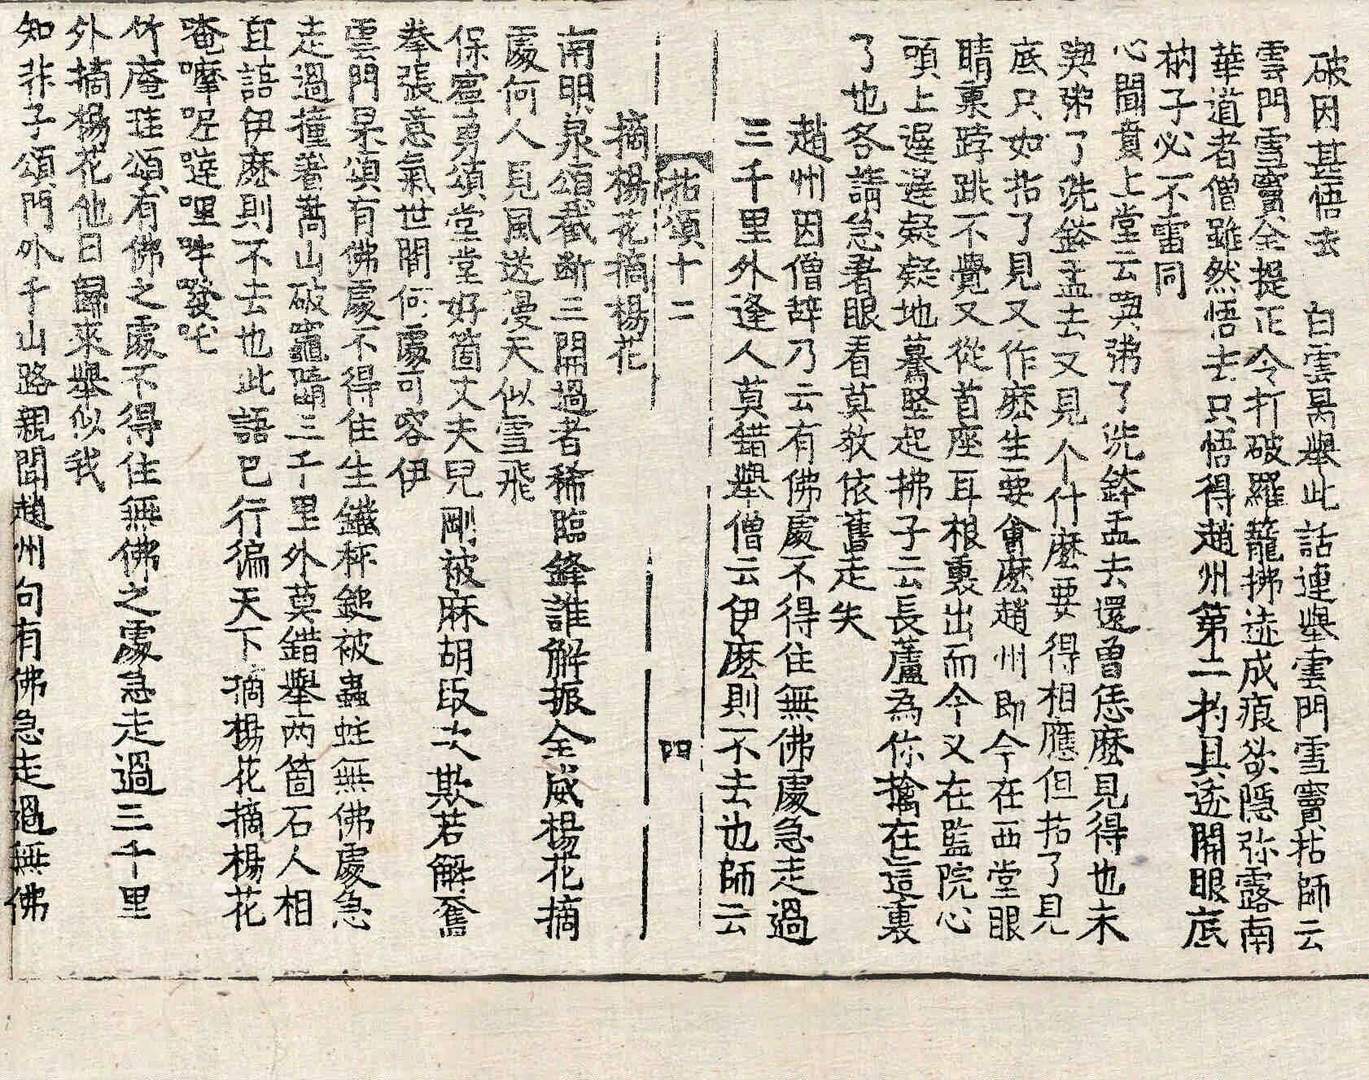 破因甚悟去　白雲昺舉此話連擧雲門雪竇拈師云
雲門雪竇全提正令打破羅籠拂迹成痕欲隱弥露南
華道者僧雖然悟去只悟得趙州第二杓具透關眼底
衲子必不雷同
心聞賁上堂云喫粥了洗鉢盂去還曾恁麽見得也未
喫粥了洗鉢盂去又見个什麽要得相應但拈了見
底只如拈了見又作麽生要會麽趙州即今在西堂眼
睛裏𨁝跳不覺又從首座耳根裏出而今又在監院心
頭上遲遲疑疑地驀竪起拂子云長蘆為你擒在這裏
了也各請急著眼看莫敎依舊走失
趙州因僧辞乃云有佛處不得住無佛處急走過
三千里外逢人莫錯擧僧云伊麽則不去也師云
拈頌十二　四
摘楊花摘楊花
南明泉頌截斷三關過者稀臨鋒誰解振全威楊花摘
處何人見風送漫天似雪飛
保寧勇頌堂堂好箇丈夫兒剛被麻胡取次欺若解奮
拳張意氣世間何處可容伊
雲門杲頌有佛處不得住生鐵秤鎚被蟲蛀無佛處急
走過撞着嵩山破竈墮三千里外莫錯擧两箇石人相
耳語伊麽則不去也此語已行徧天下摘楊花摘楊花
唵嘛呢噠哩吽㗶吒
竹庵珪頌有佛之處不得住無佛之處急走過三千里
外摘楊花他日歸來擧似我
知非子頌門外千山路親聞趙州句有佛急走過無佛